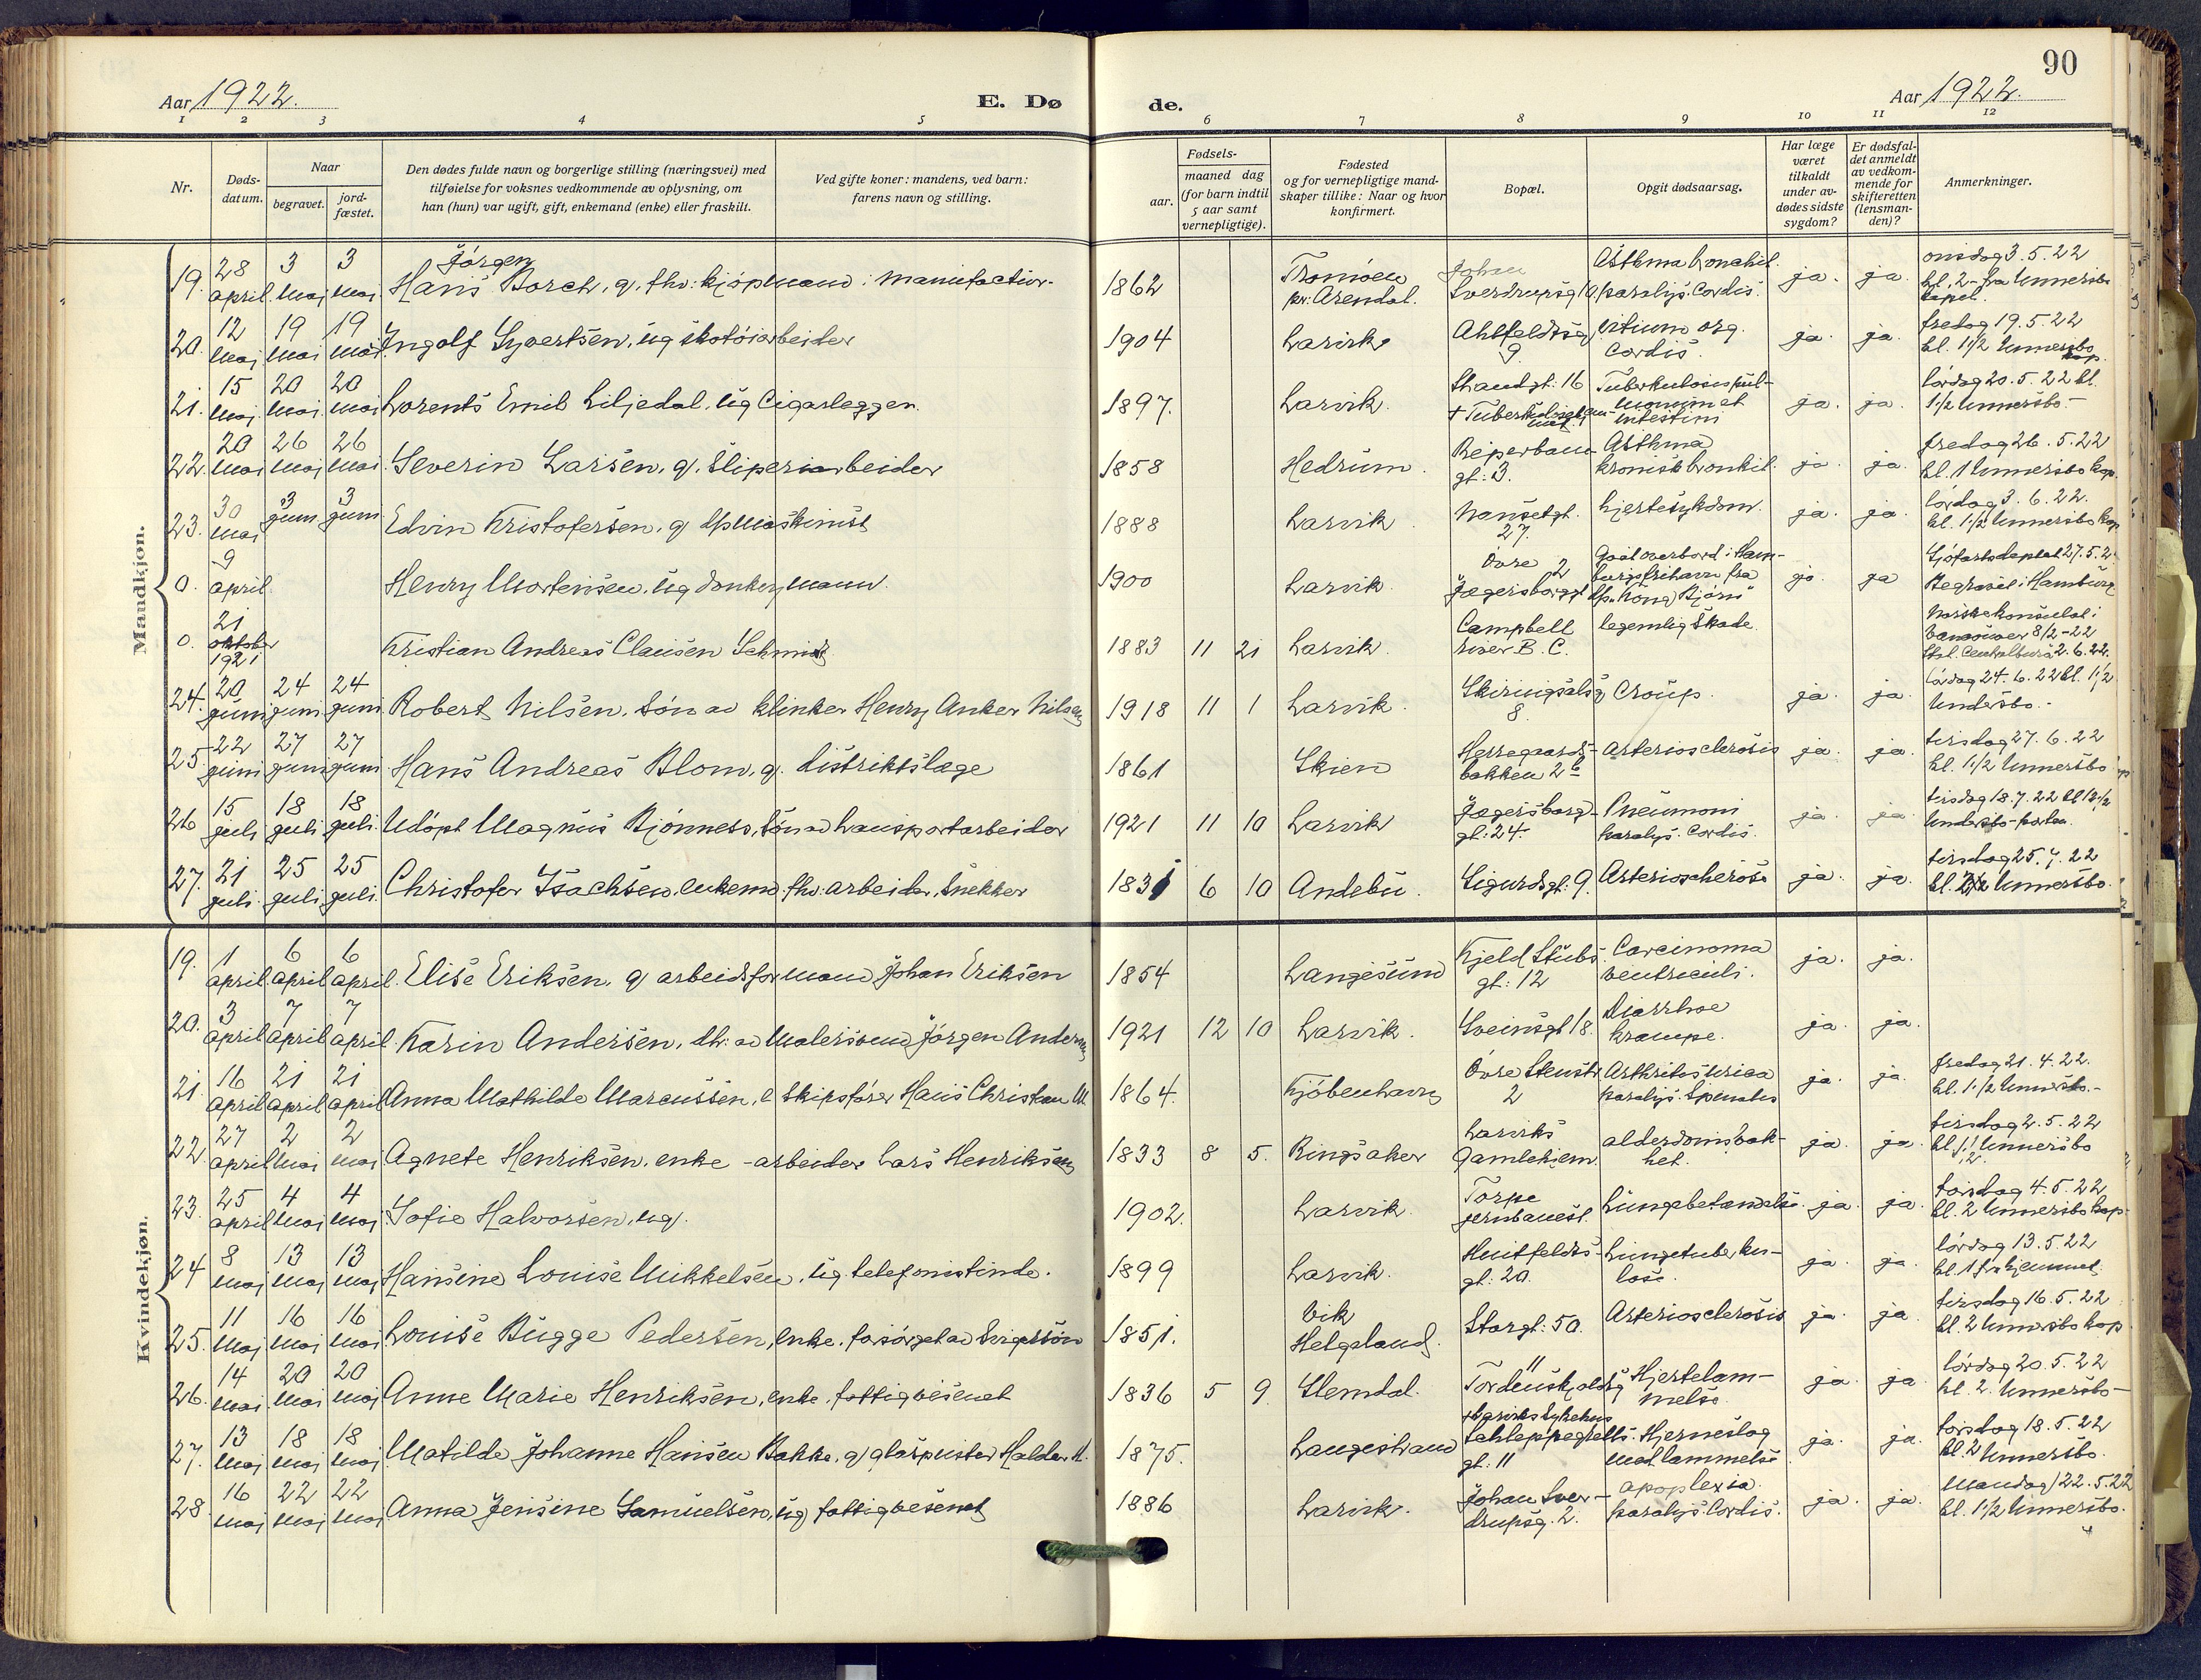 90
Aar 1922. E. Dø de. Aar 1922.
1 2 3 4 5 6 7 8 9 10 11 12
Nr. Døds-datum. Naar begravet. jord-fæstet. Den dødes fulde navn og borgerlige stilling (næringsvei) med tilføielse for voksnes vedkommende av oplysning, om han (hun) var ugift, gift, enkemand (enke) eller fraskilt. Ved gifte koner: mandens, ved barn: farens navn og stilling. Fødsels- aar. maaned dag (for barn indtil 5 aar samt vernepligtige). Fødested og for vernepligtige mandskaper tillike: Naar og hvor konfirmert. Bopæl. Opgit dødsaarsag. Har læge været tilkaldt under avdødes sidste sygdom? Er dødsfaldet anmeldt av vedkommende for skifteretten (lensmanden)? Anmerkninger.
Mandkjøn.
19. 28 april 3 maj 3 maj Hans Jörgen Borch, g. fhv. kjöpmand i manufactur. 1862 Tromöen pr. Arendal. Johan Sverdrupsg 10 Asthma bronchit. paralys. Cordis. ja. ja. onsdag 3.5.22 kl. 2 - fra Unnersbo kapel.
20. 12 maj 19 maj 19 maj Ingolf Syvertsen, ug skotöiarbeider 1904 Larvik Ahlfeldtsg 9. vitium org. Cordis. ja. ja. fredag 19.5.22 kl. 1 1/2 Unnersbo kap.
21. 15 maj 20 maj 20 maj Lorents Emil Liljedal, ug Cigarlegger. 1897. Larvik. Strandgt: 16 Tuberkulosis pulmonum et intestini ja. ja. lördag 20.5.22 kl. 1 1/2 Unnersbo.-
22. 20 maj 26 maj 26 maj Severin Larsen, g. Sliperiarbeider 1858 Hedrum. Reperbane gt: 3. Asthma kronisk bronkit. ja. ja. fredag 26.5.22 kl. 1 Unnersbo kap.
23. 30 maj 3 juni 3 juni Edvin Kristofersen, g dpmaskinist 1888 Larvik. Nansetgt. 27. hjertesykdom. ja. ja. lördag 3.6.22. kl. 1 1/2 Unnersbo kap
0. 9 april. Henry Mortensen, ug donkeymann. 1900 Larvik. Övre Jegersborggt 2 Gaat overbord i Hamburgs frihavn fra dp. "Kong Bjørn" ja. ja Sjöfartsdeptet 27.5.2 Begravet i Hamburg
0. 21 oktober 1921 Kristian Andreas Clausen Schmidt 1883 11 21 Larvik. Campbell river B.C. legemlig Skade Norske konsulat i Vancouver 8/2-22 Stat. Centralbura 2.6.22.
24. 20 juni 24 juni 24 juni Robert Nilsen, Sön av klinker Henry Anker Nilsen 1918 11 1 Larvik. Skiringsalsg 8. Croup. ja. ja. lördag 24.6.22 kl. 1 1/2 Undersbo.-
25. 22 juni 27 juni 27 juni Hans Andreas Blom, g. distriktslæge 1861 Skien Herregaardsbakken 2b arteriosclerosis ja. ja. tirsdag 27.6.22 kl. 1 1/2 Unnersbo
26 15 juli 18 juli 18 juli. Udöpt Magnus Bjönness, Sön av transportarbeider 1921 11 10 Larvik Jegersborg gt: 24. Pneumoni paralys. Cordis. ja. ja. tirsdag 18.7.22 kl 12 1/2 Undersbo porten.
27. 21 juli 25 juli 25 juli. Christofer Isachsen, enkemd. fhv. arbeider, Snekker 1831 6 10 Andebu. Sigurdsgt: 9. Arterioscherose ja. ja. tirsdag 25.7.22 kl. Unnersbo.
Kvindekjøn.
19. 1 april. 6 april 6 april. Elise Eriksen, g arbeidsformand Johan Eriksen 1854 Langesund Kjeld Stubs gt: 12 Carcinoma ventriculi. ja. ja.
20. 3 april 7 april 7 april. Karin Andersen, dtr. av Malersvend Jörgen Andersen 1921 12 10 Larvik. Sveinsgt 18. Diarrhoe krampe. ja. ja.
21. 16 april 21 april 21 april Anna Mathilde Marcussen, e Skipsförer Hans Christian M. 1864. Kjöbenhavn Övre Stenstr 2 Arthritis urica paralys. Spinalis ja. ja. fredag 21.4.22. kl. 1 1/2 Unnersbo.-
22 27 april 2 maj 2 maj Agnete Henriksen, enke - arbeider Lars Henriksen 1833 8 5. Ringsaker Larviks Gamlehjem. alderdomssvakhet. ja. ja. tirsdag 2.5.22 kl. 1 1/2 Unnersbo
23. 25 april 4 maj 4 maj Sofie Halvorsen, ug. 1902. Larvik. Torpe jernbanest. Lungebetændelse. ja. ja. torsdag 4.5.22 kl. 2 Unnersbo kap.
24 8 maj 13 maj 13 maj Hansine Louise Mikkelsen, ug telefonistinde. 1899 Larvik. Huitfeldts-gt: 20. Lungetuberkulose. ja. ja. lördag 13.5.22 kl. 1 fra hjemmet.
25. 11 maj 16 maj 16 maj Louise Bugge Pedersen, enke, forsörget av Svigersön 1851. Vik Helgeland. Storgt: 50. Arteriosclerosis ja. ja. tirsdag 16.5.22 kl. 2 Unnersbo kap
26. 14 maj 20 maj 20 maj Anne Marie Henriksen, enke, fattigvesenet 1836 5 9. Slemdal. Tordenskjoldsg 11 Hjertelammelse. ja. ja. lördag 20.5.22 kl. 2. Unnersbo-
27. 13 maj 18 maj 18 maj Matilde Johanne Hansen Bakke, g glaspuster Haldor H. 1875. Langestrand + Larviks Sykehus Schleppegrells gt: 11 Hjerneslag med lammelse ja. ja. torsdag 18.5.22 kl. 2 Unnersbo.
28 16 maj 22 maj 22 maj Anna Jensine Samuelsen, ug fattigvesenet 1886 Larvik. Johan Sverdrupsg. 2. apoplexia. paralys. Cordis. ja. ja. mandag 22.5.22 kl. 1 1/2 Unnersbo.